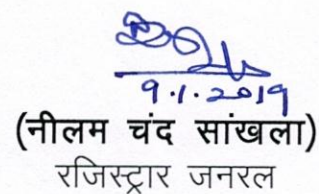 9.1.2019
(नीलम चंद सांखला)
रजिस्ट्रार जनरल